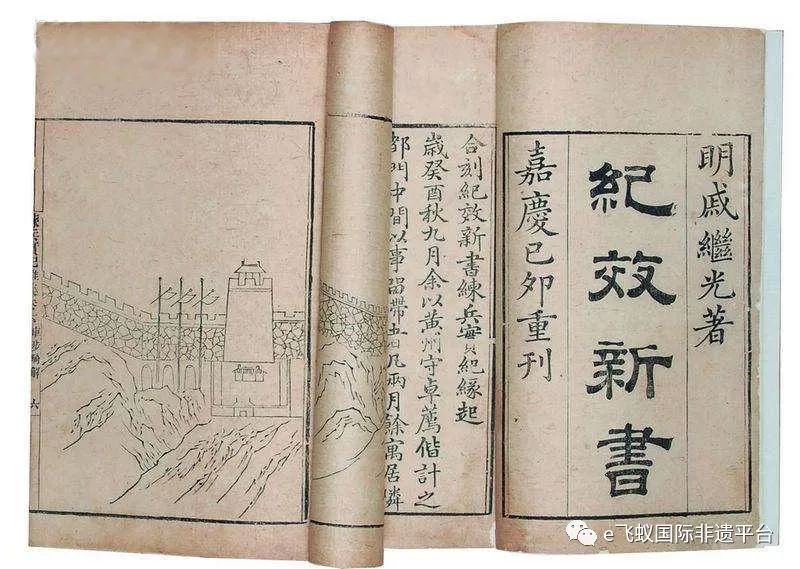 明戚繼光著
紀效新書
嘉慶己卯重刊
合刻紀效新書練兵實紀緣起
歲癸酉秋九月余以黃州守卓薦偕計之
都門中間以事留帶五石凡兩月餘寓居隣
e飞蚁国际非遗平台